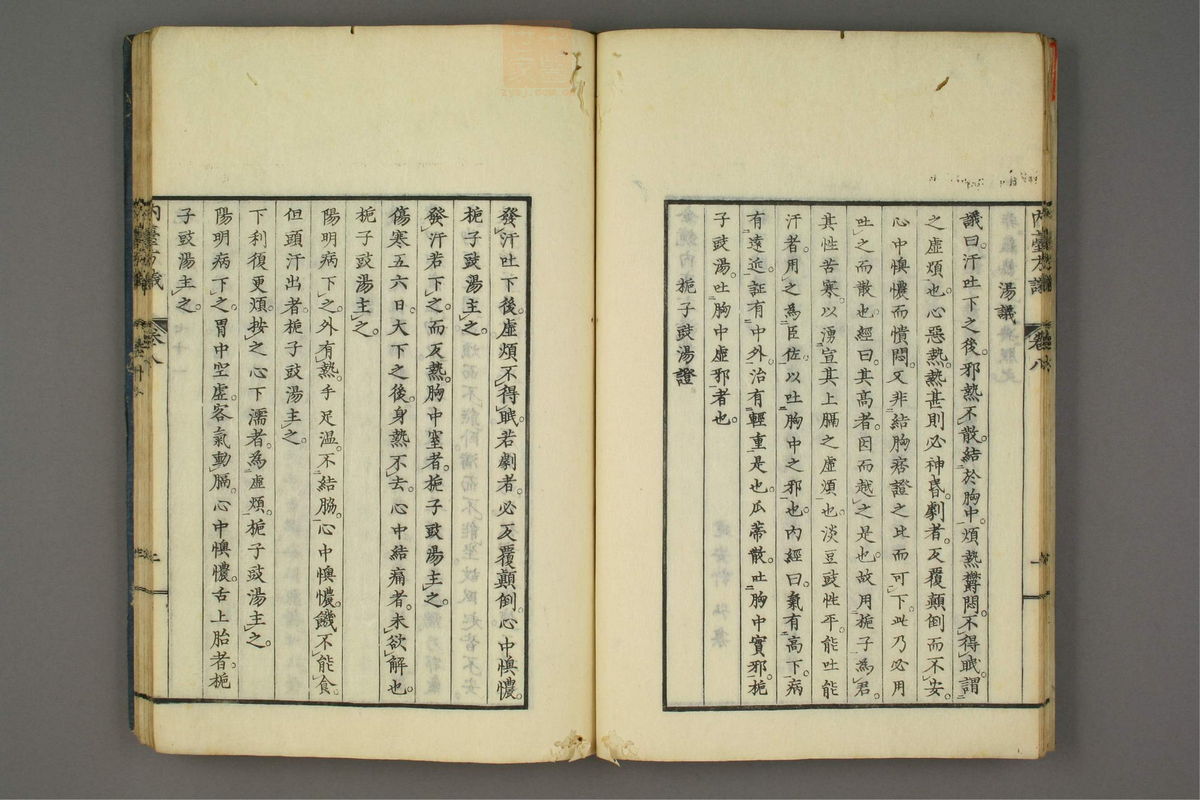 湯議
議曰。汗吐下之後。邪熱不散。結於胸中。煩熱欝悶。不得眠。謂
之虛煩也。心惡熱。熱甚則必神昏。劇者。反覆顛倒而不安。
心中懊憹而憒悶。又非結胸痞證之比而可下。此乃必用
吐之而散也。經曰。其高者。因而越之是也。故用梔子為君。
其性苦寒。以湧宣其上膈之虛煩也。淡豆豉性平。能吐能
汗者。用之為臣佐。以吐胸中之邪也。內經曰。氣有高下。病
有遠近。証有中外。治有輕重。是也。瓜蒂散。吐胸中實邪。梔
子豉湯。吐胸中虛邪者也。
梔子豉湯證
發汗吐下後。虛煩不得眠。若劇者。必反覆顛倒。心中懊憹。
梔子豉湯主之。
發汗若下之。而反熱。胸中窒者。梔子豉湯主之。
傷寒五六日。大下之後。身熱不去。心中結痛者。未欲解也。
梔子豉湯主之。
陽明病。下之。外有熱。手足溫。不結胸。心中懊憹。饑不能食。
但頭汗出者。梔子豉湯主之。
下利後更煩。按之心下濡者。為虛煩。梔子豉湯主之。
陽明病。下之。胃中空虛。客氣動膈。心中懊憹。舌上胎者。梔
子豉湯主之。
內臺方議 卷八